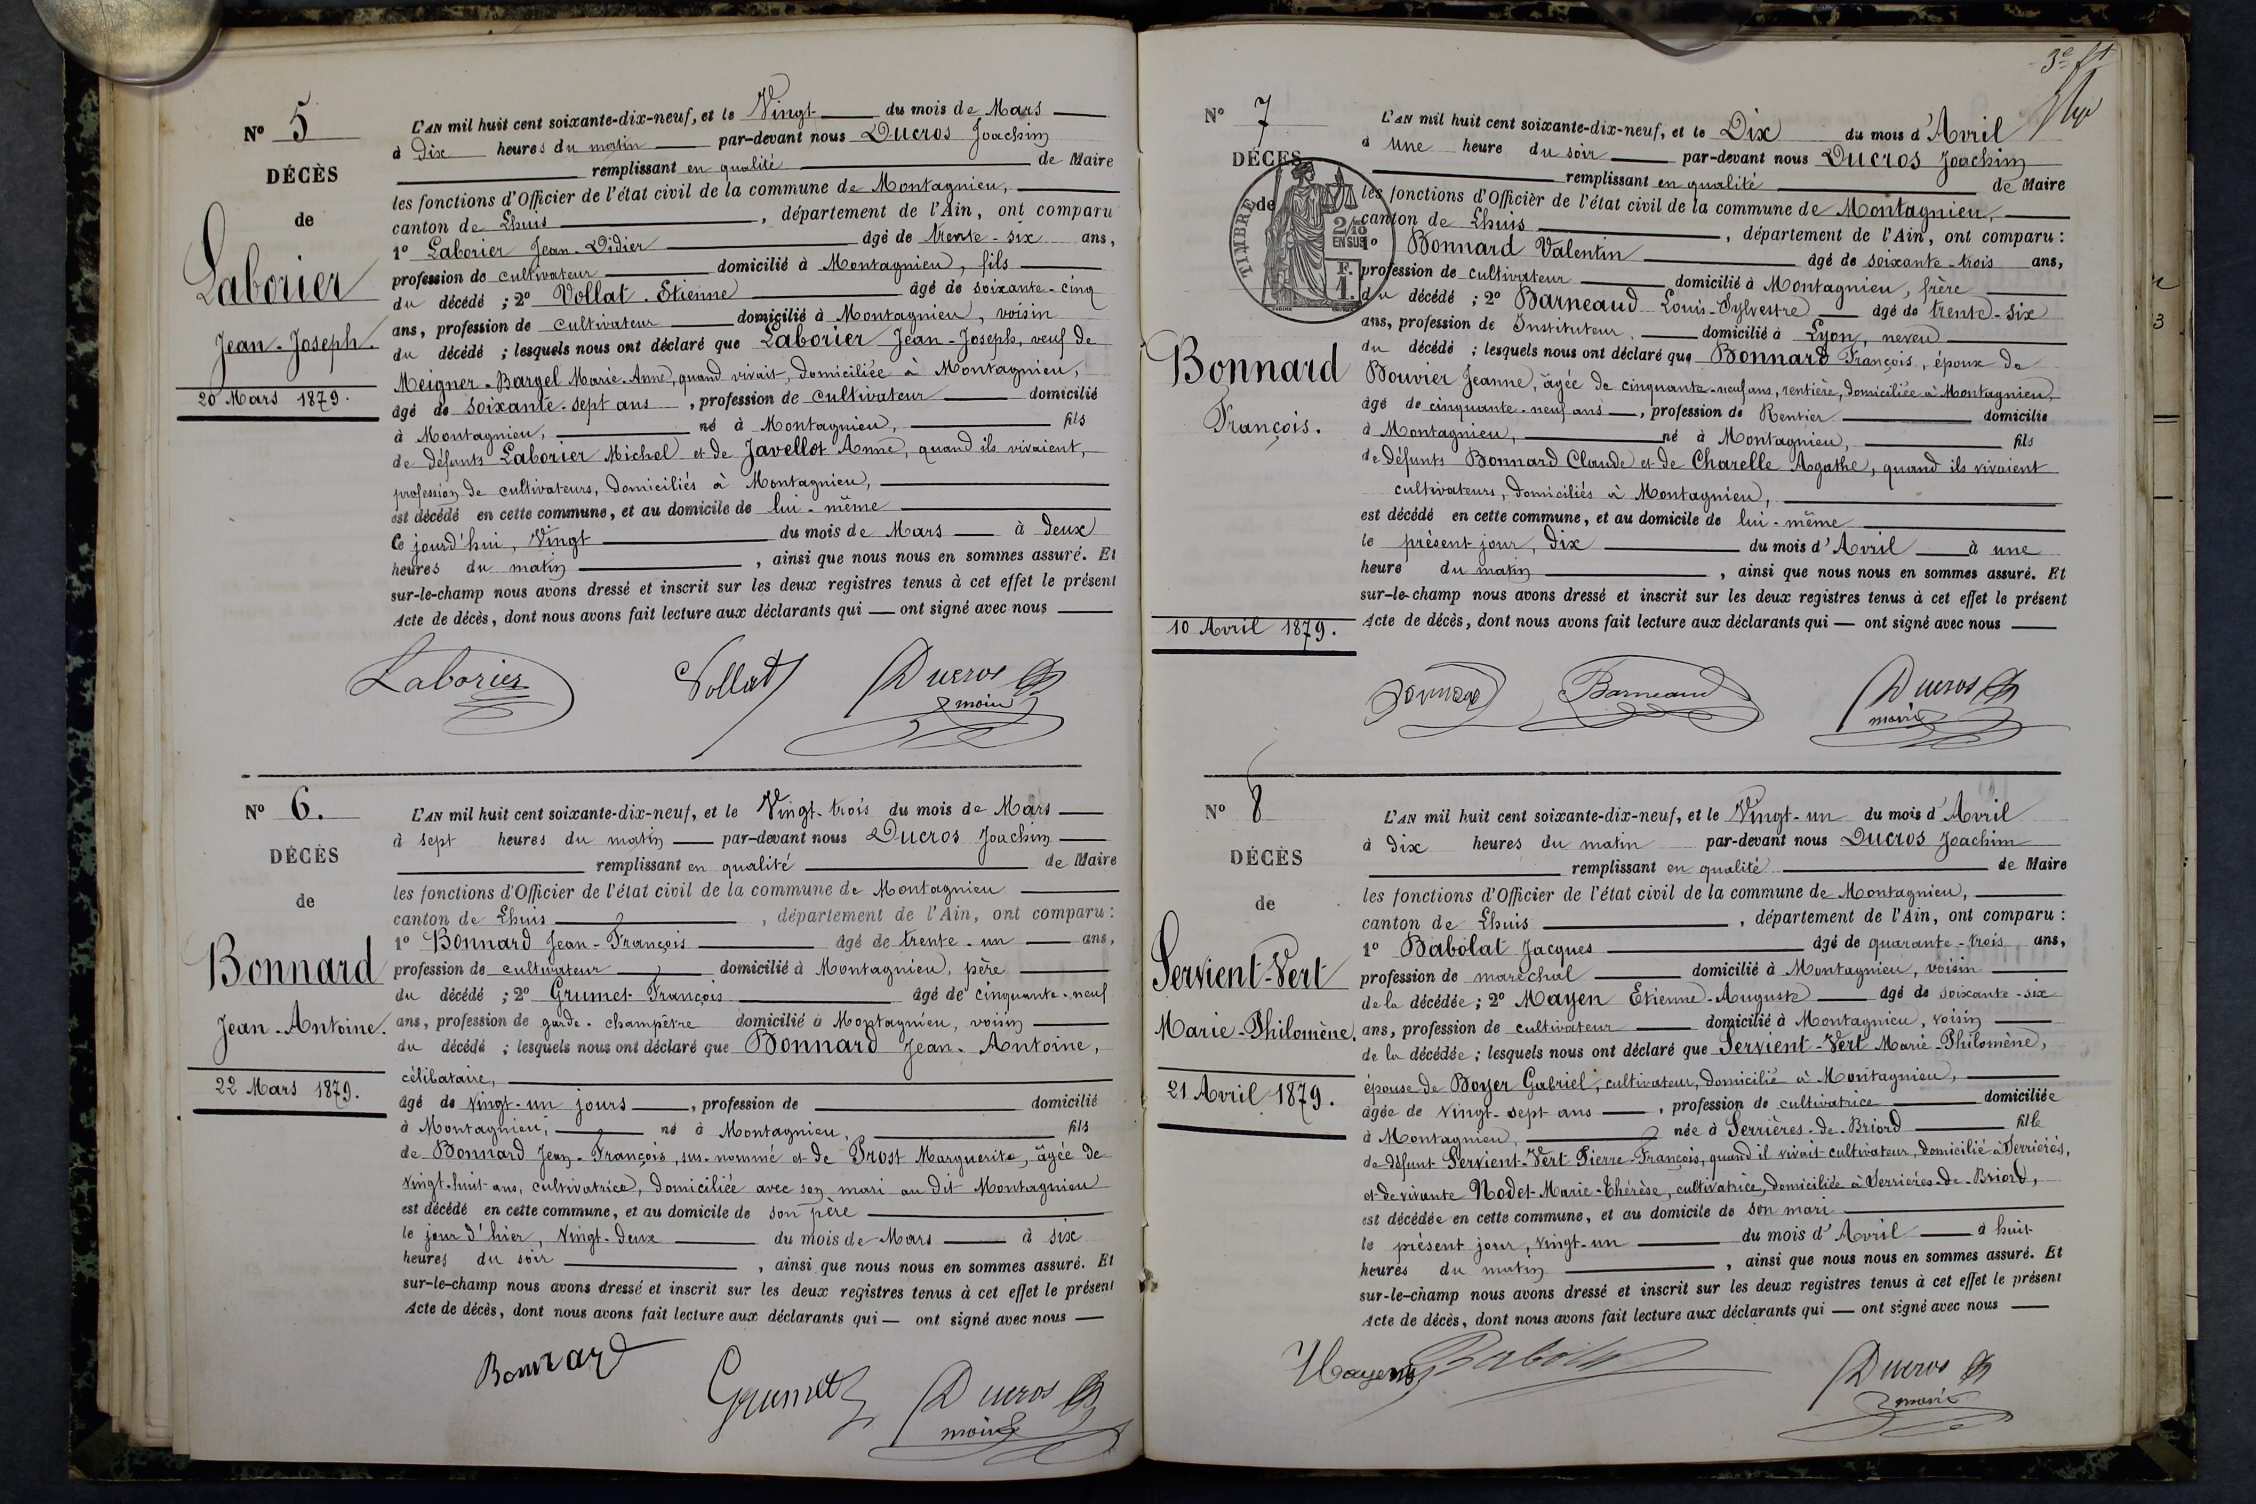 Nº 5
DÉCÈS
de
Laborier
Jean-Joseph.
20 Mars 1879.
L'AN mil huit cent soixante-dix-neuf, et le Vingt du mois de Mars
à Dix heures du matin par-devant nous Ducros Joachim
remplissant en qualité de Maire
les fonctions d'Officier de l'état civil de la commune de Montagnieu,
canton de Lhuis, département de l'Ain, ont comparu
1º Laborier Jean-Didier âgé de trente-six ans,
profession de cultivateur domicilié à Montagnieu, fils
du décédé ; 2º Vollat Etienne âgé de soixante-cinq
ans, profession de cultivateur domicilié à Montagnieu, voisin
du décédé ; lesquels nous ont déclaré que Laborier Jean-Joseph, veuf de
Meigner-Bargel Marie-Anne, quand vivait, domiciliée à Montagnieu,
âgé de soixante-sept ans, profession de cultivateur domicilié
à Montagnieu, né à Montagnieu, fils
de défunts Laborier Michel et de Javellot Anne, quand ils vivaient,
profession de cultivateurs, domiciliés à Montagnieu,
est décédé en cette commune, et au domicile de lui-même
Ce jourd'hui, Vingt du mois de Mars à deux
heures du matin, ainsi que nous nous en sommes assuré. Et
sur-le-champ nous avons dressé et inscrit sur les deux registres tenus à cet effet le présent
Acte de décès, dont nous avons fait lecture aux déclarants qui — ont signé avec nous
Laborier Vollat Ducros
maire
Nº 6.
DÉCÈS
de
Bonnard
Jean-Antoine.
22 Mars 1879.
L'AN mil huit cent soixante-dix-neuf, et le Vingt-trois du mois de Mars
à sept heures du matin par-devant nous Ducros Joachim
remplissant en qualité de Maire
les fonctions d'Officier de l'état civil de la commune de Montagnieu
canton de Lhuis, département de l'Ain, ont comparu :
1º Bonnard Jean-François âgé de trente-un ans,
profession de cultivateur domicilié à Montagnieu, père
du décédé ; 2º Grumet François âgé de cinquante-neuf
ans, profession de garde-champêtre domicilié à Montagnieu, voisin
du décédé ; lesquels nous ont déclaré que Bonnard Jean-Antoine,
célibataire,
âgé de vingt-un jours, profession de domicilié
à Montagnieu, né à Montagnieu, fils
de Bonnard Jean-François, sus-nommé et de Prost Marguerite, âgée de
vingt-huit ans, cultivatrice, domiciliée avec son mari au dit Montagnieu
est décédé en cette commune, et au domicile de son père
le jour d'hier, Vingt-deux du mois de Mars à six
heures du soir, ainsi que nous nous en sommes assuré. Et
sur-le-champ nous avons dressé et inscrit sur les deux registres tenus à cet effet le présent
Acte de décès, dont nous avons fait lecture aux déclarants qui — ont signé avec nous
Bonnard Grumet Ducros
maire
3e ft
Nº 7
DÉCÈS
de
TIMBRE
2/10
EN SUS
F.
1.
Bonnard
François.
10 Avril 1879.
L'AN mil huit cent soixante-dix-neuf, et le Dix du mois d'Avril
à Une heure du soir par-devant nous Ducros Joachim
remplissant en qualité de Maire
les fonctions d'Officier de l'état civil de la commune de Montagnieu,
canton de Lhuis, département de l'Ain, ont comparu :
1º Bonnard Valentin âgé de soixante-trois ans,
profession de cultivateur domicilié à Montagnieu, frère
du décédé ; 2º Barneaud Louis-Sylvestre âgé de trente-six
ans, profession de Instituteur domicilié à Lyon, neveu
du décédé ; lesquels nous ont déclaré que Bonnard François, époux de
Bouvier Jeanne, âgée de cinquante-neuf ans, rentière, domiciliée à Montagnieu,
âgé de cinquante-neuf ans, profession de Rentier domicilié
à Montagnieu, né à Montagnieu, fils
de défunts Bonnard Claude et de Charelle Agathe, quand ils vivaient
cultivateurs, domiciliés à Montagnieu,
est décédé en cette commune, et au domicile de lui-même
le présent jour, dix du mois d'Avril à une
heure du matin, ainsi que nous nous en sommes assuré. Et
sur-le-champ nous avons dressé et inscrit sur les deux registres tenus à cet effet le présent
Acte de décès, dont nous avons fait lecture aux déclarants qui — ont signé avec nous
Bonnard Barneaud Ducros
maire
Nº 8
DÉCÈS
de
Servient-Vert
Marie-Philomène.
21 Avril 1879.
L'AN mil huit cent soixante-dix-neuf, et le Vingt-un du mois d'Avril
à dix heures du matin par-devant nous Ducros Joachim
remplissant en qualité de Maire
les fonctions d'Officier de l'état civil de la commune de Montagnieu,
canton de Lhuis, département de l'Ain, ont comparu :
1º Babolat Jacques âgé de quarante-trois ans,
profession de maréchal domicilié à Montagnieu, voisin
de la décédée ; 2º Mayen Etienne-Auguste âgé de soixante-six
ans, profession de cultivateur domicilié à Montagnieu, voisin
de la décédée ; lesquels nous ont déclaré que Servient-Vert Marie-Philomène,
épouse de Boyer Gabriel, cultivateur, domicilié à Montagnieu,
âgée de vingt-sept ans, profession de cultivatrice domiciliée
à Montagnieu, née à Serrières-de-Briord fille
de défunt Servient-Vert Pierre-François, quand il vivait cultivateur, domicilié à Serrières,
et de vivante Nodet-Marie-Thérèse, cultivatrice, domiciliée à Serrières-de-Briord,
est décédée en cette commune, et au domicile de son mari
le présent jour, vingt-un du mois d'Avril à huit
heures du matin, ainsi que nous nous en sommes assuré. Et
sur-le-champ nous avons dressé et inscrit sur les deux registres tenus à cet effet le présent
Acte de décès, dont nous avons fait lecture aux déclarants qui — ont signé avec nous
Mayen Babolat Ducros
maire